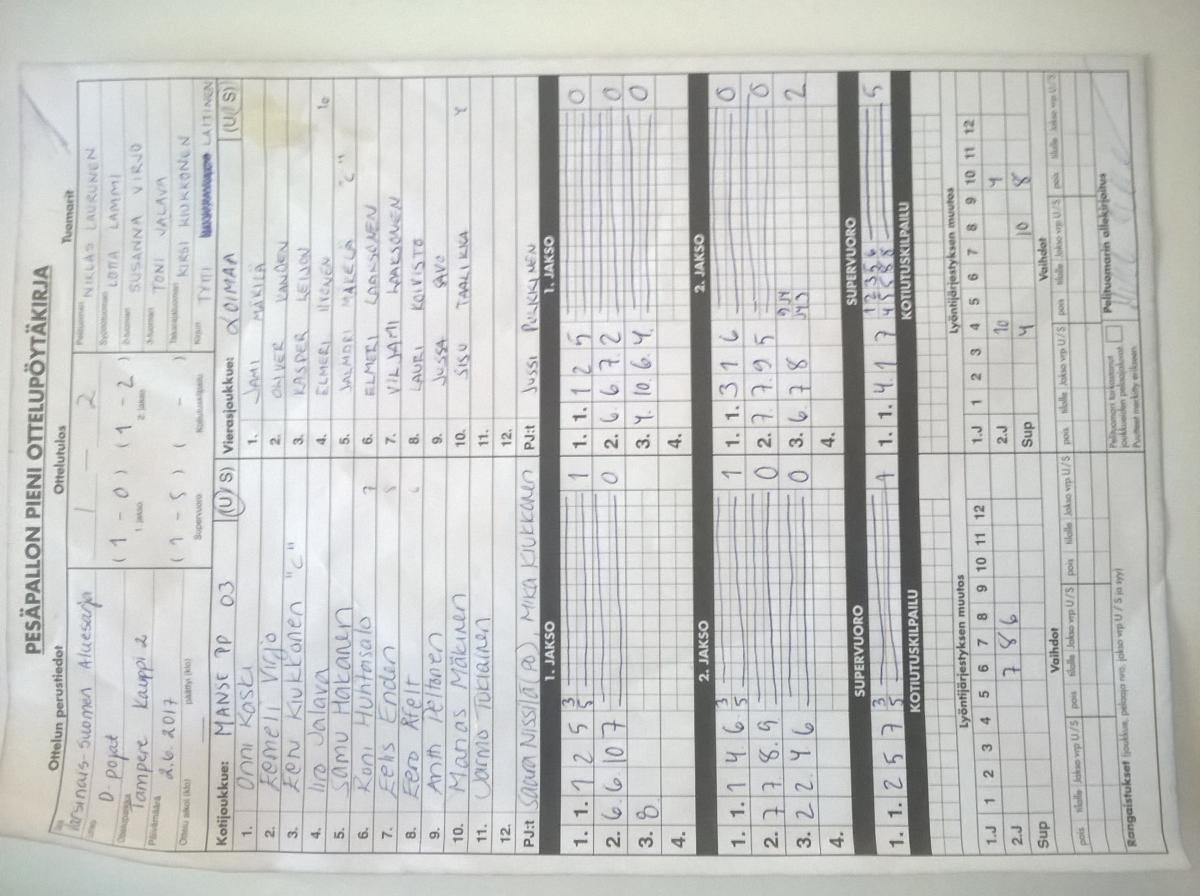 PESÄPALLON PIENI OTTELUPÖYTÄKIRJA
Ottelun perustiedot
Varsinais-Suomen Aluesarja
D Pojat
Tampere Kauppi 2
Päivämäärä
2.6.2017
Ottelu alkoi (klo) päättyi (klo)
Ottelutulos
1 — 2
(1 - 0) (1 - 2)
1. jakso 2. jakso
(1 - 5) ( - )
Supervuoro Kotiutuskilpailu
Tuomarit
Pelituomari NIKLAS LAURUNEN
Syöttötuomari LOTTA LAMMI
2-tuomari SUSANNA VIRJO
3-tuomari TONI JALAVA
Takarajatuomari KIRSI KIUKKONEN
Kirjuri TYTI LAITINEN
Kotijoukkue: MANSE PP 03 (U/S)
1. Onni Koski
2. Eemeli Virjo
3. Eenu Kiukkonen "C"
4. Iiro Jalava
5. Samu Hakanen
6. Roni Huhtasalo 7
7. Eelis Enden 8
8. Eero Afelt 6
9. Antti Peltonen
10. Manas Mäkinen
11. Jarmo Tokiainen
12.
PJ:t Saara Nissilä (PO), MIKA KIUKKONEN
Vierasjoukkue: LOIMAA (U/S)
1. JAMI MÄKILÄ
2. OLIVER VANDEN
3. KASPER LEIJON
4. ELMERI IIVONEN 10
5. JALMARI MÄKELÄ "C"
6. ELMERI LAAKSONEN
7. VILJAMI LAAKSONEN
8. LAURI KOIVISTO
9. JUSSA SAVO
10. SISU TAALIKKA 4
11.
12.
PJ:t JUSSI PELKKINEN
1. JAKSO
1. 1. 1 2 5 3 5 1
2. 6. 6 10 7 0
3. 8
4.
1. JAKSO
1. 1. 1 2 5 0
2. 6. 6 7. 2 0
3. 4. 10. 6. 4. 0
4.
2. JAKSO
1. 1. 1 4. 6. 3 5 1
2. 7 7 8. 9 0
3. 2 2. 4 6 0
4.
2. JAKSO
1. 1. 3 1 6 0
2. 7. 7. 9 5 0
3. 6. 7 8 2
4.
SUPERVUORO
1. 1. 2 5 7 3 5 1
KOTIUTUSKILPAILU
SUPERVUORO
1. 1. 4. 1 7 5
KOTIUTUSKILPAILU
Lyöntijärjestyksen muutos
1.J 1 2 3 4 5 6 7 8 9 10 11 12
2.J 7 8 6
Sup
Vaihdot
pois tilalle Jakso vrp U/S pois tilalle Jakso vrp U/S pois tilalle Jakso vrp U/S
Lyöntijärjestyksen muutos
1.J 1 2 3 4 5 6 7 8 9 10 11 12
2.J 10 4
Sup 4 10 8
Vaihdot
pois tilalle Jakso vrp U/S pois tilalle Jakso vrp U/S pois tilalle Jakso vrp U/S
Rangaistukset (joukkue, pelaaja nro, jakso vrp U / S ja syy)
Pelituomari tarkastanut
joukkueiden pelaajaluvat.
Puutteet merkitty erikseen.
Pelituomarin allekirjoitus